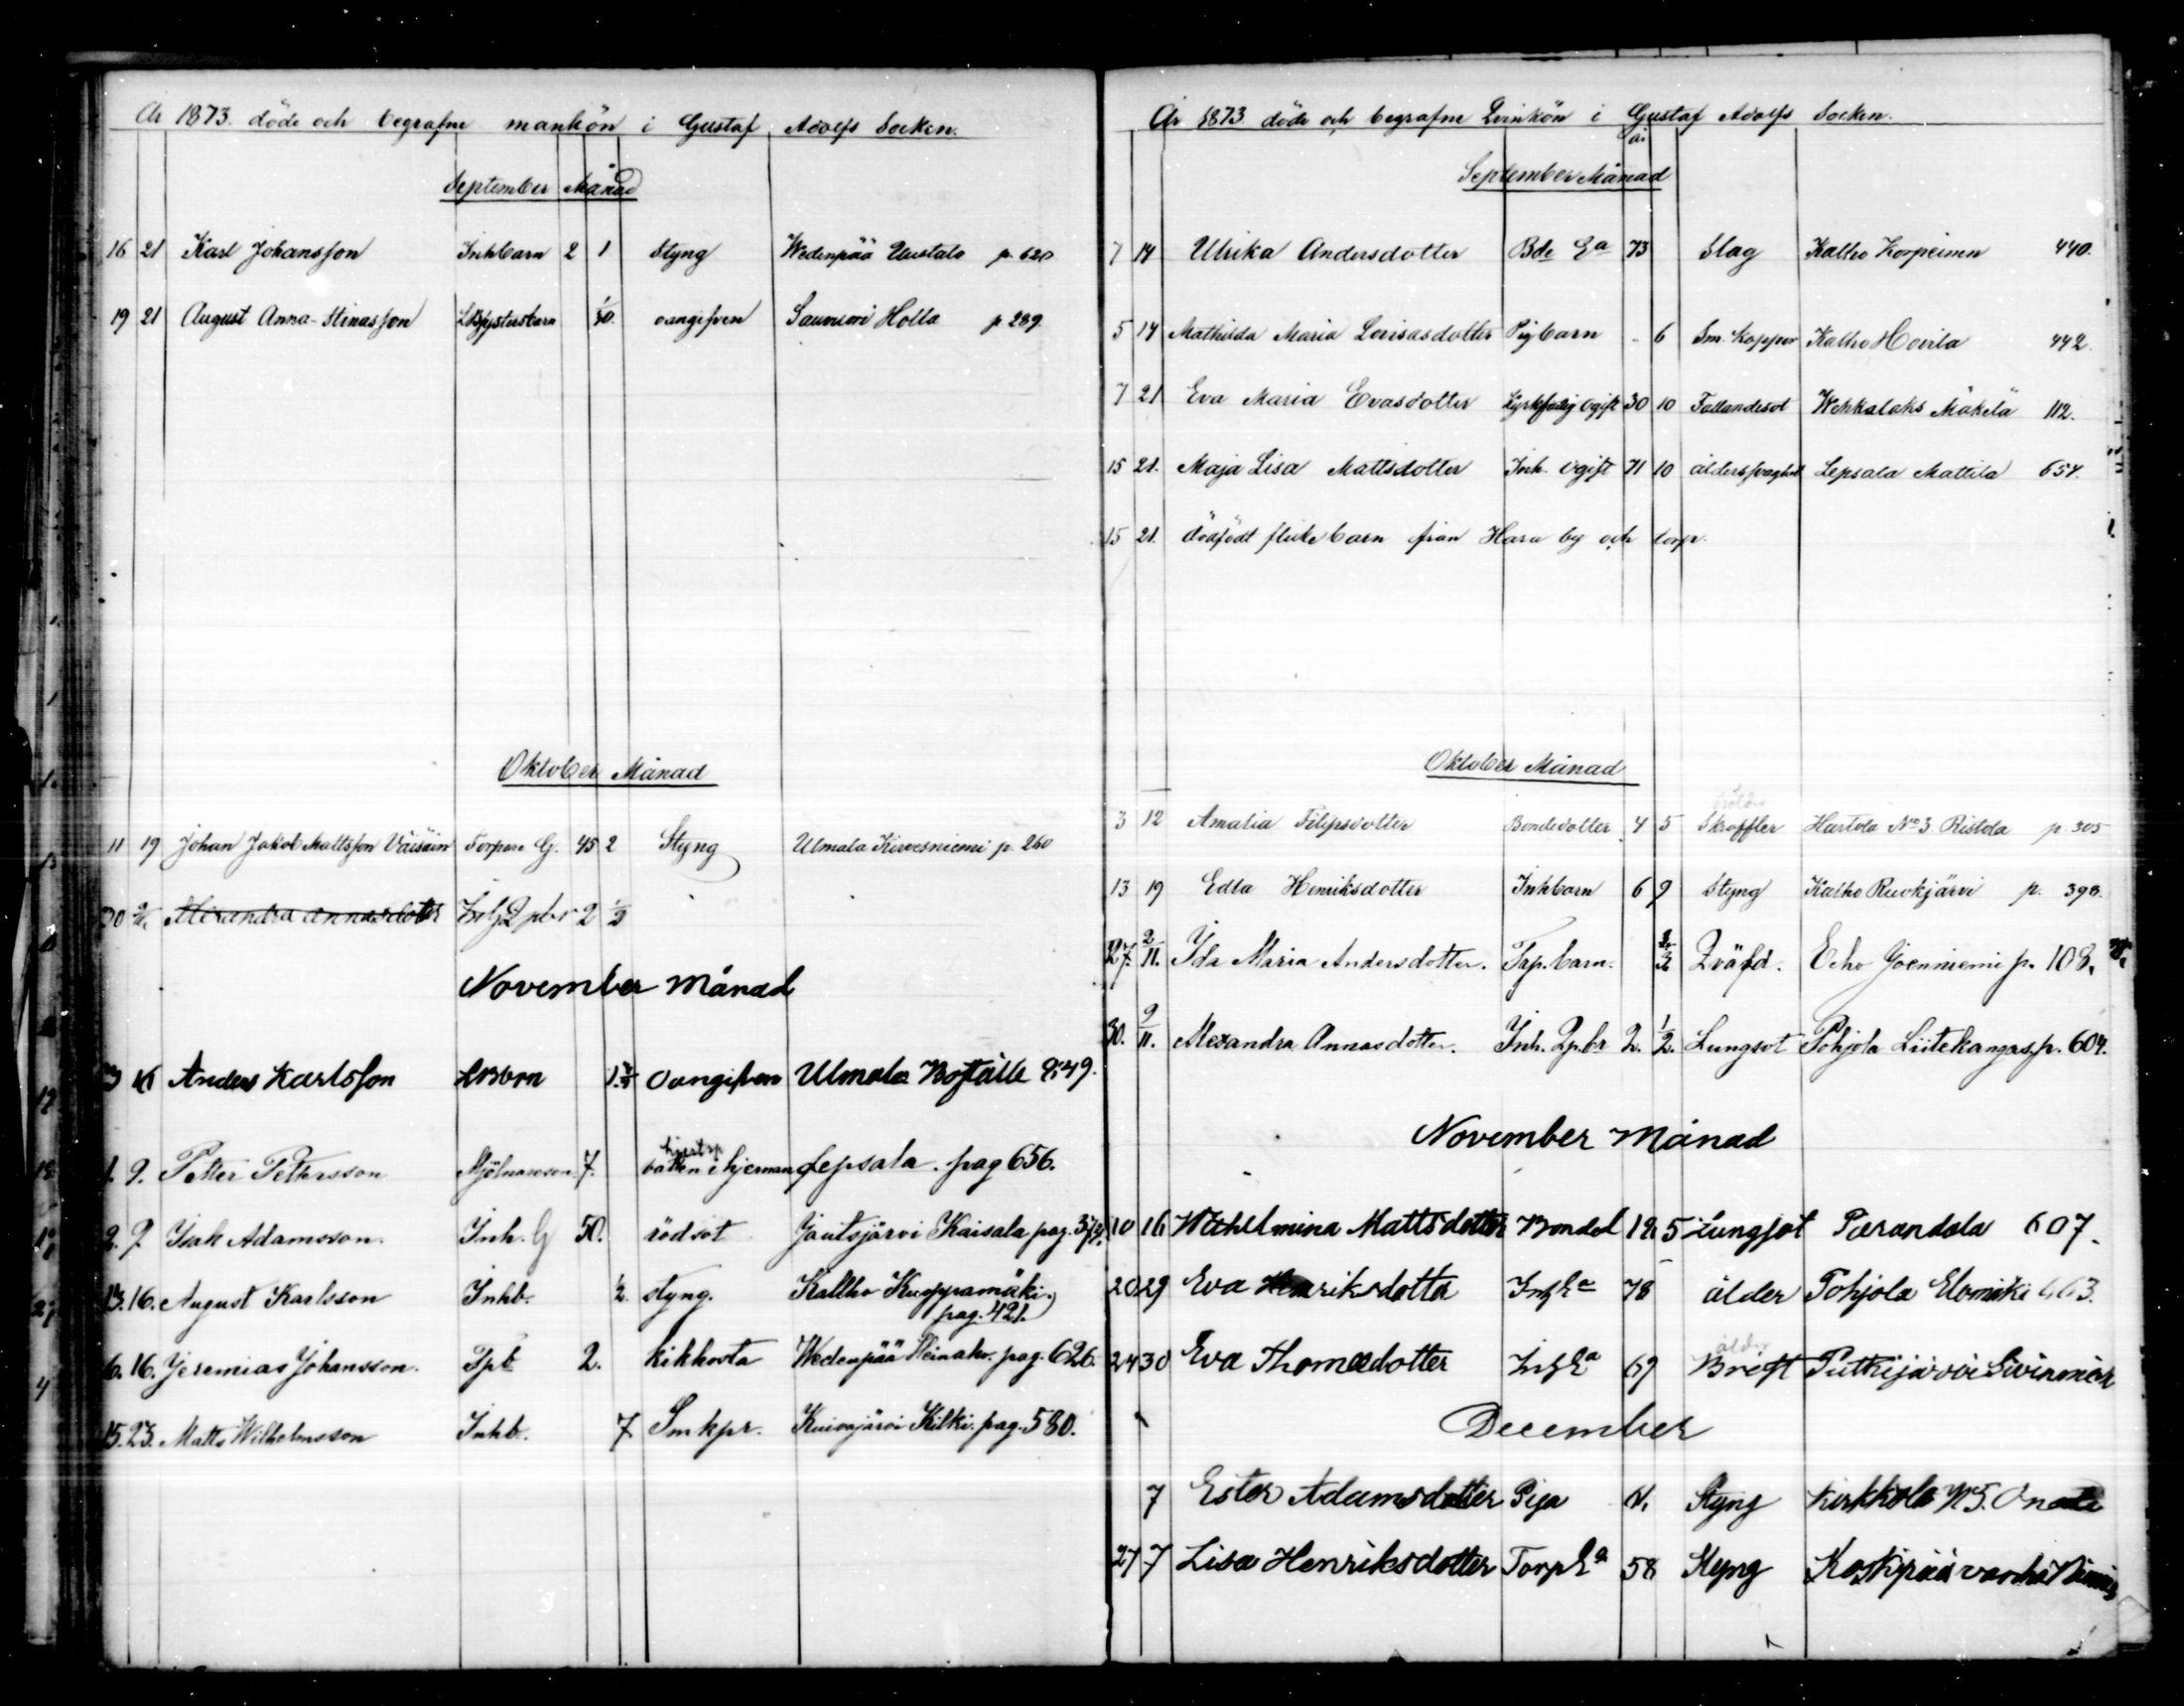 År 1873. döde och begrafne mankön i Gustaf Adolfs Socken.
September Månad
16 21 Karl Johansson Inhbarn 2 1 Styng Wedenpää Uustalo p. 620
19 21 August Anna-Stinasson 1/30. oangifven Saunsori Holla p. 289.
Oktober Månad
11 19 Johan Jakob Mattsson Väisäin Torpare G. 45 2 Styng Ulmala Kirvesniemi p. 260
30 9/11. Alexandra Annasdotter 2 1/2
November Månad
16 Anders Karlsson oangifven Ulmala Boställe 249.
1. 9. Petter Pettersson Mjölnareson 7. vatten i hjernan Lepsala. pag 656.
2. 9. Isak Adamsson. Inh. G 50. rödsot Jautsjärvi Kaisala pag. 372.
13. 16. August Karlsson Inhb. 1/2. styng. Kalho Kuoppamäki.
pag. 421.
6. 16. Jeremias Johansson. Tpb 2. kikhosta Wedenpää Heinaho. pag. 626.
15. 23. Matts Wilhelmsson Inhb. 7 Smkpr. Kuivajärvi Kilki. pag. 580.
År 1873 döde och begrafne Qvinkön i Gustaf Adolfs Socken.
år
September Månad
7 14 Ulrika Andersdotter Bde Ea 73 Slag Kalho Korpeinen 440.
5 14 Mathilda Maria Lovisasdotter Pigbarn - 6 Sm. koppor Kalho Hovila 442.
7 21 Eva Maria Evasdotter ogift 30 10 Fallandesot Wehkalaks Mäkelä 112.
15 21. Maja Lisa Mattsdotter Inh. ogift 71 10 åldersvaghet Lepsala Mattila 654.
15 21. dödfödt flickebarn från Hara by och torp.
Oktober Månad
3 12 Amalia Filipsdotter Bondedotter 4 5 Skroffler Hartola No 3 Ristola p. 305
13 19 Edla Henriksdotter Inhbarn 6 9 Styng Kalho Ruokjärvi p. 390.
27. 2/11. Ida Maria Andersdotter. Torp. barn. Qväfd. Echo Joenniemi p. 108.
30. 9/11. Alexandra Annasdotter. Inh. Qp. br 2. 1/2. Lungsot Pohjola Liitekangas p. 604.
November Månad
10 16 Wilhelmina Mattsdotter Bonded 12 5 Lungsot Purandola 607.
20 29 Eva Henriksdotter Inh Ea 78 ålder Pohjola Elomäki 663.
ålder
24 30 Eva Thomasdotter Inh Ea 69 Bröst Putkijärvi
December
7 Ester Adamsdotter Piga Styng Kirkkola No 5.
27 7 Lisa Henriksdotter Torp Ea 58 Styng Koskipää vanha